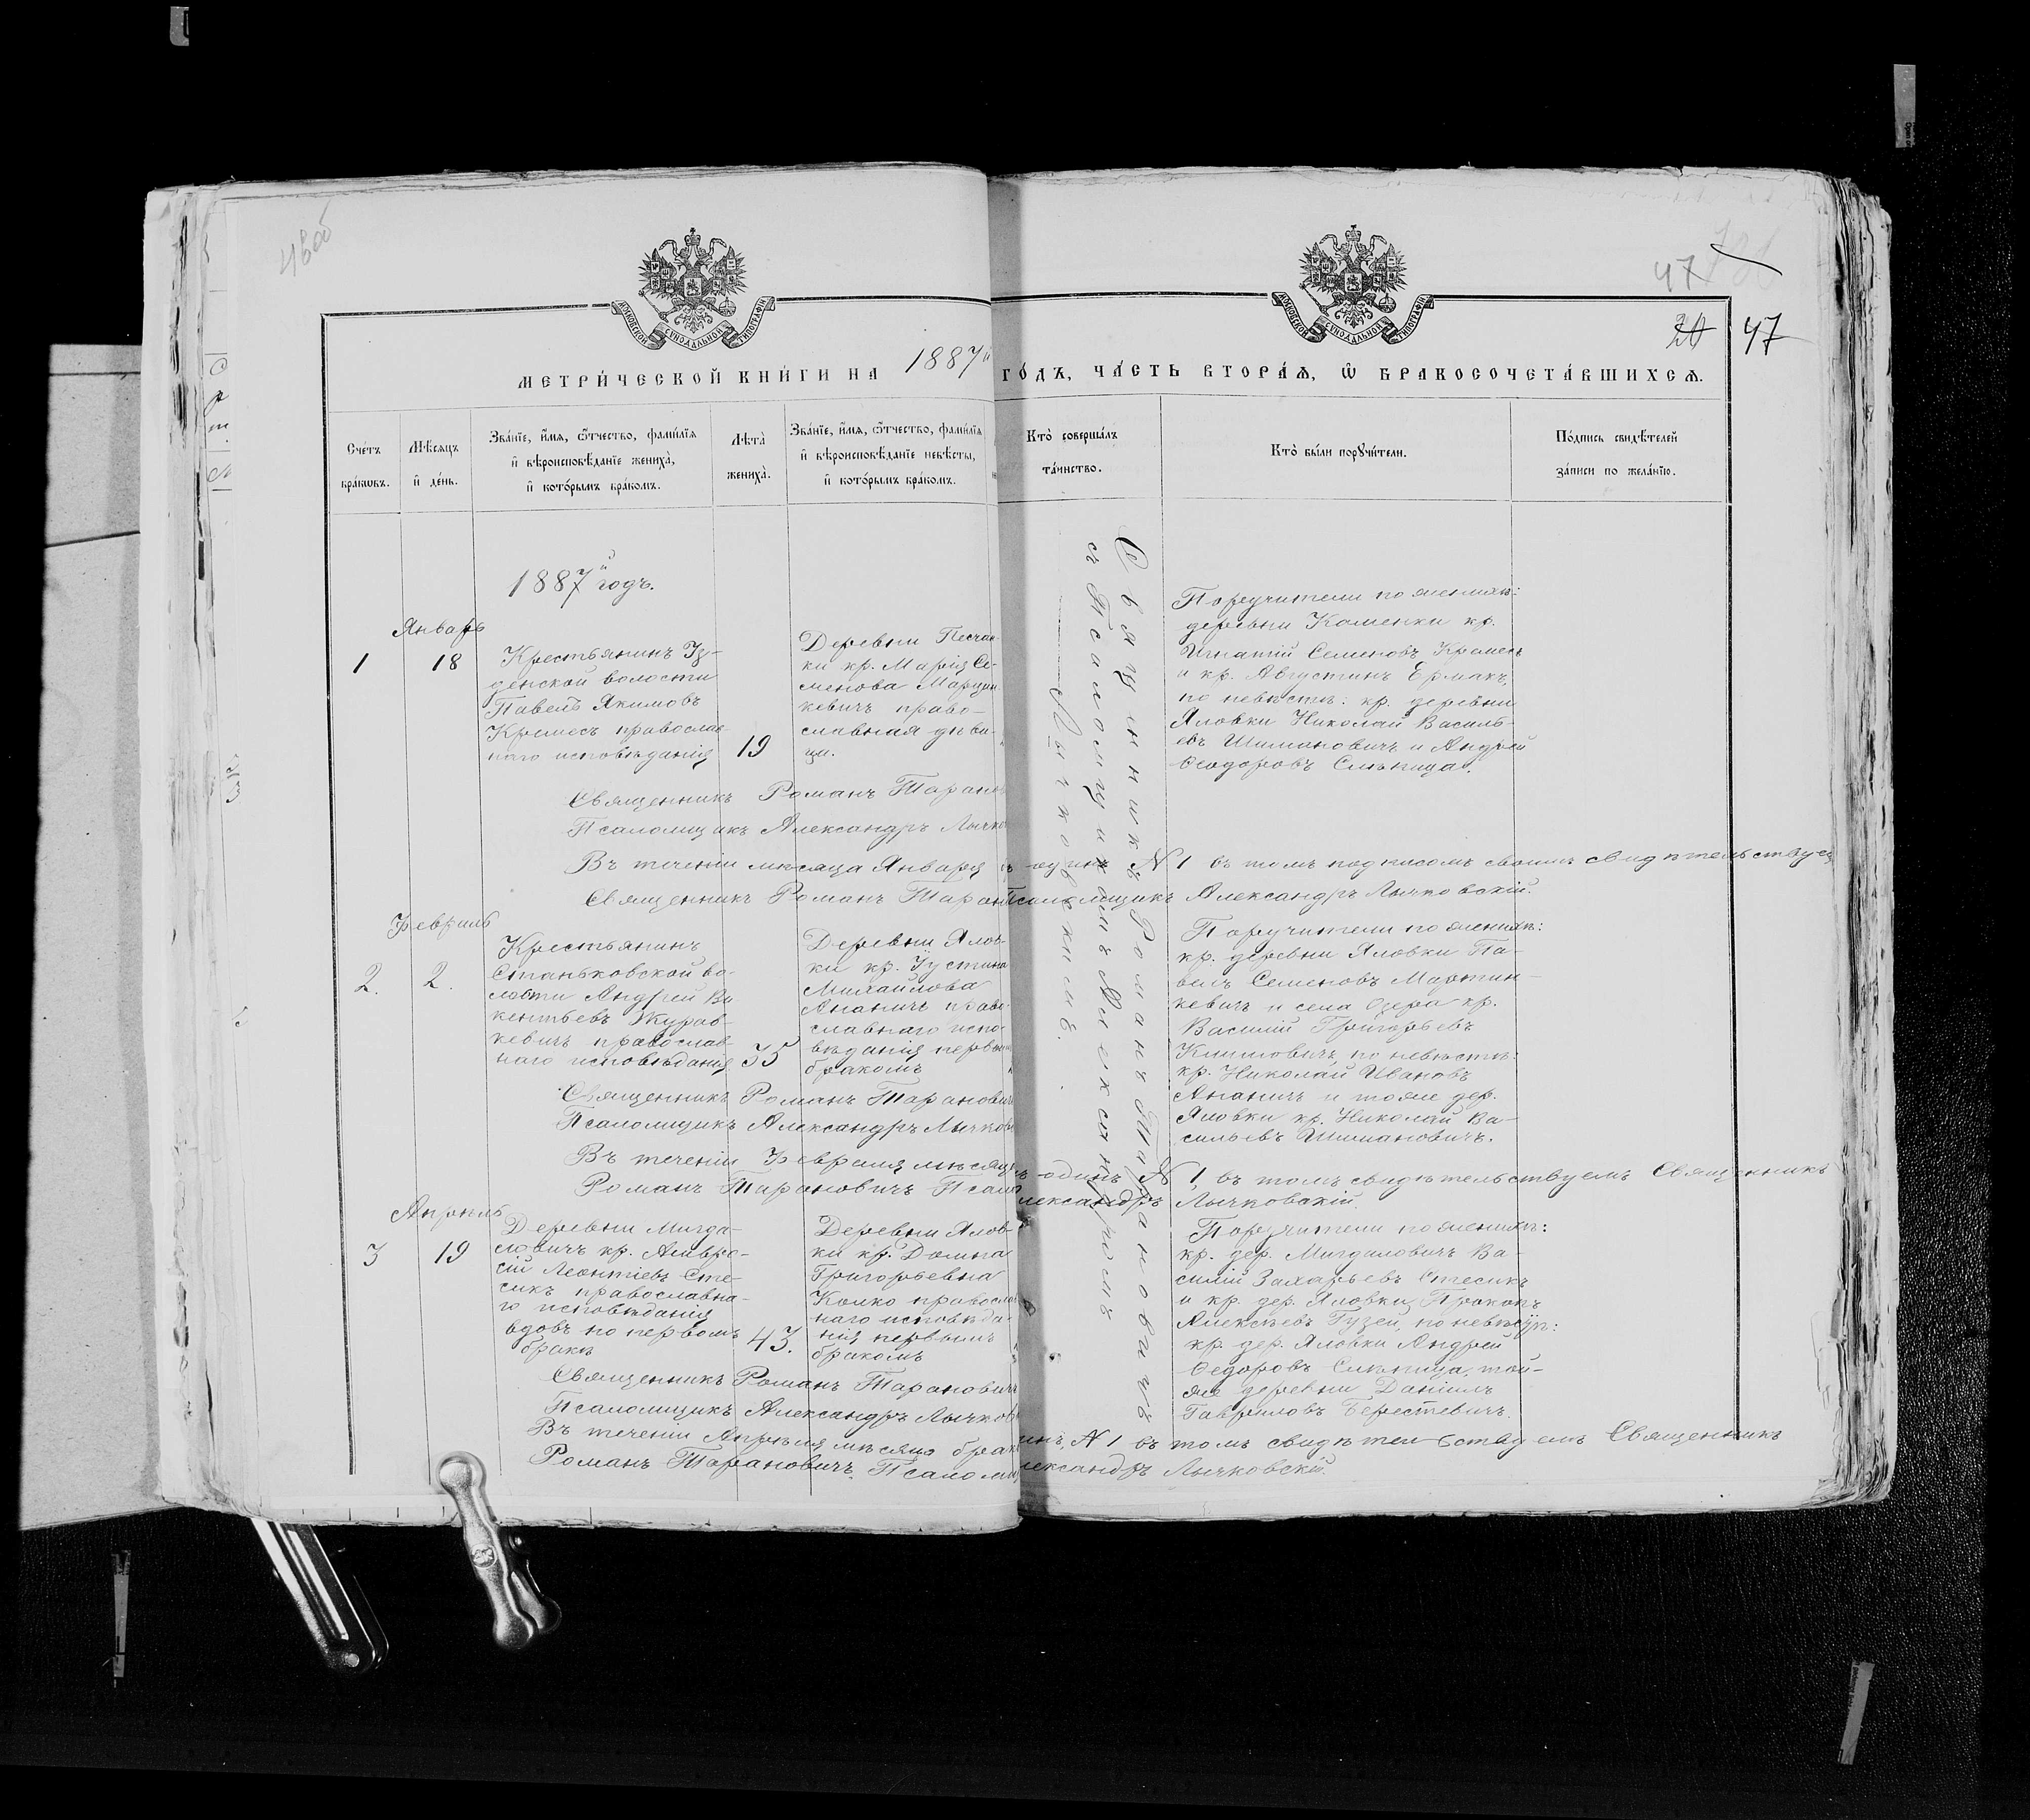 46 об
47
20 47
МОСКОВСКОЙ СѴНОДАЛЬНОЙ ТИПОГРАФІИ
МОСКОВСКОЙ СѴНОДАЛЬНОЙ ТИПОГРАФІИ
МЕТРИ́ЧЕСКОЙ КНИ́ГИ НА 1887й ГО́ДЪ, ЧА́СТЬ ВТОРА́Ѧ, Ѽ БРАКОСОЧЕТА́ВШИХСѦ.
Сче́тъ
бра́кωвъ.
Мѣ́сяцъ
и҆ де́нь.
Зва́нїе, и҆́мя, ѻ҆́тчество, фами́лїя
и҆ вѣроисповѣ́данїе жениха̀,
и҆ кото́рымъ бра́комъ.
Лѣта̀
жениха̀.
Зва́нїе, и҆́мя, ѻ҆́тчество, фами́лїя
и҆ вѣроисповѣ́данїе невѣ́сты,
и҆ кото́рымъ бра́комъ.
Кто̀ соверша́лъ
та́инство.
Кто̀ бы́ли порꙋчи́тели.
По́дпись свидѣ́телей
за́писи по жела́нїю.
1887й годъ.
Январь
1
18
Крестьянинъ Уз-
денской волости
Павелъ Якимовъ
Кремесъ православ-
наго исповѣданія
19
Деревни Песчан-
ки кр. Марія Се-
менова Марцин-
кевичъ право-
славная дѣви-
ца.
Священникъ Романъ Тарановичемъ
съ Псаломщикомъ Александромъ
Лычковскимъ.
Поручители по женихѣ:
деревни Каменки кр.
Игнатій Семеновъ Кремесъ
и кр. Августинъ Ермакъ,
по невѣстѣ: кр. деревни
Яловки Николай Василь-
евъ Шимановичъ и Андрей
Ѳеодоровъ Слѣпица.
Священникъ Романъ Таранов
Псаломщикъ Александръ Лычко
Въ теченіи мѣсяца Января одинъ N 1 въ томъ подписомъ своимъ свидѣтельствуемъ
Священникъ Романъ Таран Псаломщикъ Александръ Лычковскій.
Февраль
2.
2.
Крестьянинъ
Станьковской во-
лости Андрей Ви
кентьевъ Журав-
кевичъ православ-
наго исповѣданія
35
Деревни Ялов-
ки кр. Іустина
Михайлова
Ананичъ право-
славнаго испо-
вѣданія первымъ
бракомъ
Поручители по женихѣ:
кр. деревни Яловки Па-
велъ Семеновъ Мартин-
кевичъ и села Озера кр.
Василій Григорьевъ
Климовичъ, по невѣстѣ:
кр. Николай Ивановъ
Ананичъ и тояже дер.
Яловки кр. Николай Ва-
сильевъ Шимановичъ.
Священникъ Романъ Таранович
Псаломщикъ Александръ Лычков
Въ теченіи Февраля мѣсяца одинъ N 1, въ томъ свидѣтельствуемъ Священникъ
Романъ Тарановичъ Псалом лександръ Лычковскій
Апрѣль
3
19
Деревни Мигда-
ловичъ кр. Амвро-
сій Леонтіевъ Сте-
сикъ православна-
го исповѣданія
вдовъ по первомъ
бракѣ
43.
Деревни Ялов-
ки кр. Домна
Григорьевна
Колко правосла
наго исповѣда-
нія первымъ
бракомъ
Поручители по женихѣ:
кр. дер. Мигдаловичъ Ва-
силій Захарьевъ Стесикъ
и кр. дер. Яловки Прокопъ
Алексѣевъ Гузей, по невѣстѣ:
кр. дер. Яловки Андрей
Ѳедоровъ Слѣпица, той-
же деревни Даніилъ
Гавриловъ Берестевичъ.
Священникъ Романъ Таранович
Псаломщикъ Александръ Лычков
Въ теченіи Апрѣля мѣсяца брак инъ, N 1 въ томъ свидѣтельствуемъ Священникъ
Романъ Тарановичъ. Псаломщ лександръ Лычковскій.